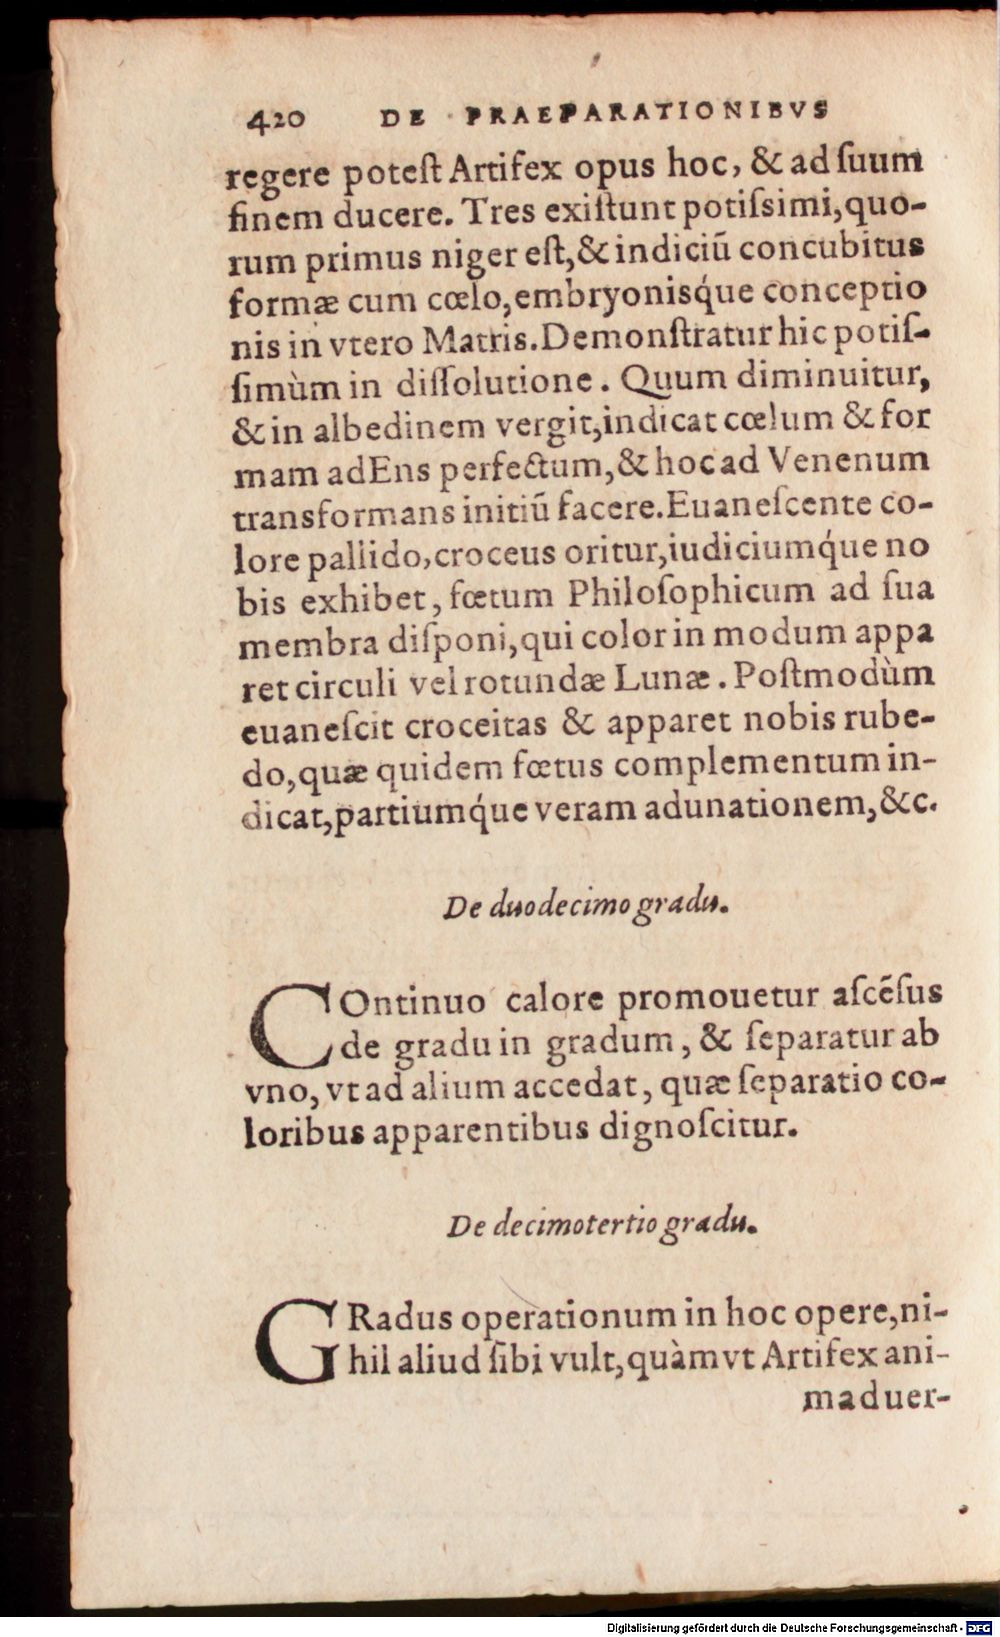 420 DE PRAEPARATIONIBVS
regere poteſt Artifex opus hoc, & ad ſuum
finem ducere. Tres exiſtunt potiſsimi, quo-
rum primus niger eſt, & indiciũ concubitus
formæ cum cœlo, embryonisq́ue conceptio
nis in vtero Matris. Demonſtratur hic potiſ-
ſimùm in diſſolutione. Quum diminuitur,
& in albedinem vergit, indicat cœlum & for
mam ad Ens perfectum, & hoc ad Venenum
transformans initiũ facere. Euaneſcente co-
lore pallido, croceus oritur, iudiciumq́ue no
bis exhibet, fœtum Philoſophicum ad ſua
membra diſponi, qui color in modum appa
ret circuli vel rotundæ Lunæ. Poſtmodùm
euaneſcit croceitas & apparet nobis rube-
do, quæ quidem fœtus complementum in-
dicat, partiumq́ue veram adunationem, &c.
De duodecimo gradu.
COntinuo calore promouetur aſcẽſus
de gradu in gradum, & ſeparatur ab
vno, vt ad alium accedat, quæ ſeparatio co-
loribus apparentibus dignoſcitur.
De decimotertio gradu.
GRadus operationum in hoc opere, ni-
hil aliud ſibi vult, quàm vt Artifex ani-
maduer-
Digitalisierung gefördert durch die Deutsche Forschungsgemeinschaft - DFG